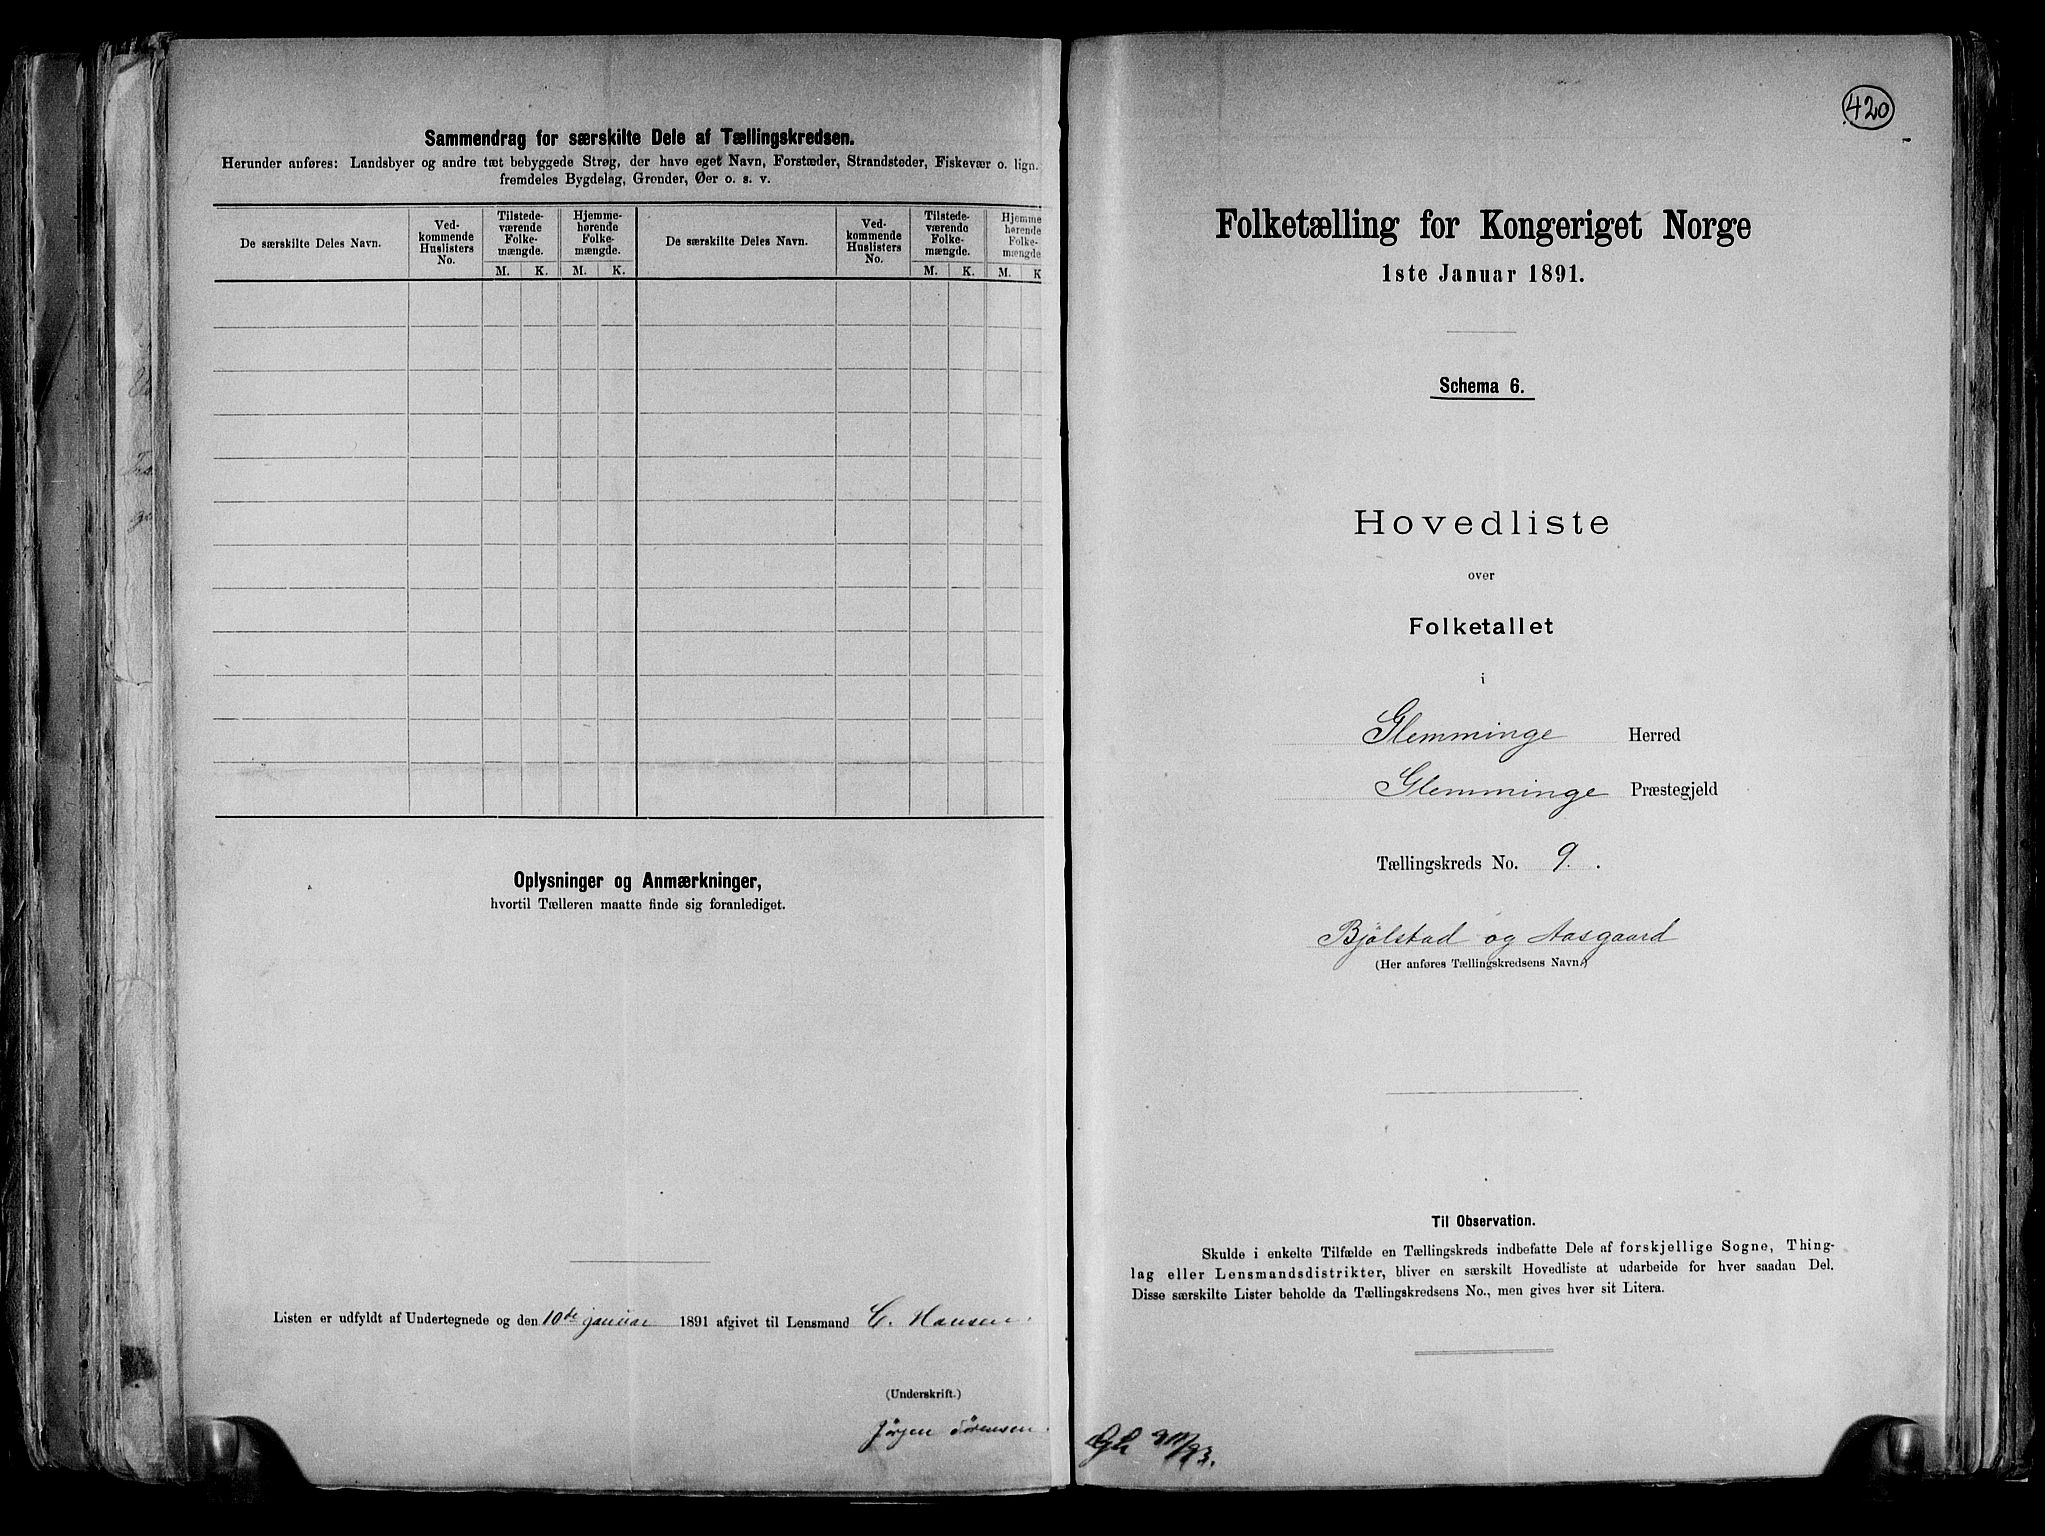 Sammendrag for særskilte Dele af Tællingskredsen.
Herunder anføres: Landsbyer og andre tæt bebyggede Strøg, der have eget Navn, Forstæder, Strandsteder, Fiskevær o. lign.
fremdeles Bygdelag, Grender, Øer o. s. v.
De særskilte Deles Navn.
Ved-
kommende
Huslisters
No.
Tilstede-
værende
Folke-
mængde.
Hjemme-
hørende
Folke-
mængde.
De særskilte Deles Navn.
Ved-
kommende
Huslisters
No.
Tilstede-
værende
Folke-
mængde.
Hjemme
hørende
Folke-
mængde
M. K. M. K. M. K. M. K
Oplysninger og Anmærkninger,
hvortil Tælleren maatte finde sig foranlediget.
Listen er udfyldt af Undertegnede og den 10de januar 1891 afgivet til Lensmand C. Hansen.
(Underskrift.)
Jørgen Sørensen.
420
Folketælling for Kongeriget Norge
1ste Januar 1891.
Schema 6.
Hovedliste
over
Folketallet
i
Glemminge Herred
Glemminge Præstegjeld
Tællingskreds No. 9.
Bjölstad og Aasgaard
(Her anføres Tællingskredsens Navn.)
Til Observation.
Skulde i enkelte Tilfælde en Tællingskreds indbefatte Dele af forskjellige Sogne, Thing-
lag eller Lensmandsdistrikter, bliver en særskilt Hovedliste at udarbeide for hver saadan Del.
Disse særskilte Lister beholde da Tællingskredsens No., men gives hver sit Litera.